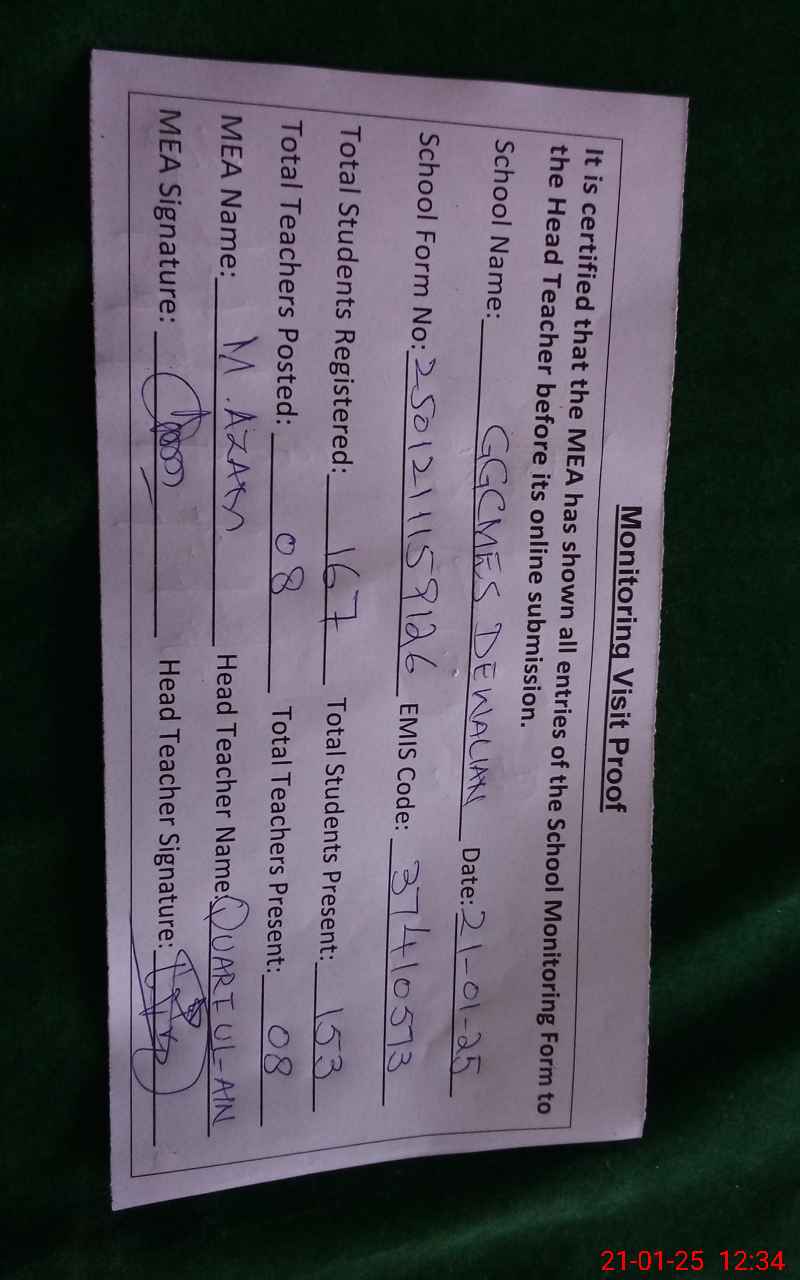 Monitoring Visit Proof
It is certified that the MEA has shown all entries of the School Monitoring Form to
the Head Teacher before its online submission.
School Name: GGCMES DEWALIAN Date: 21-01-25
School Form No: 250121159126 EMIS Code: 37410573
Total Students Registered: 167 Total Students Present: 153
Total Teachers Posted: 08 Total Teachers Present: 08
MEA Name: M. AZAM Head Teacher Name: QUARTUL-AIN
MEA Signature: Head Teacher Signature:
21-01-25 12:34